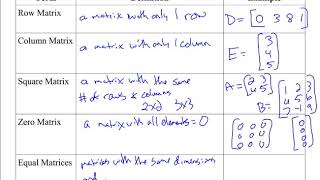 Row Matrix
a matrix with only 1 row
D = [0 3 8 1]
Column Matrix
a matrix with only 1 column
E = [3
4
5]
Square Matrix
a matrix with the same
# of rows & columns
2x2 3x3
A = [2 3
4 5]
B = [1 2 3
4 5 6
7 -1 9]
Zero Matrix
a matrix with all elements = 0
[0 0
0 0
0 0]
[0
0
0]
Equal Matrices
matrices with the same dimensions
and